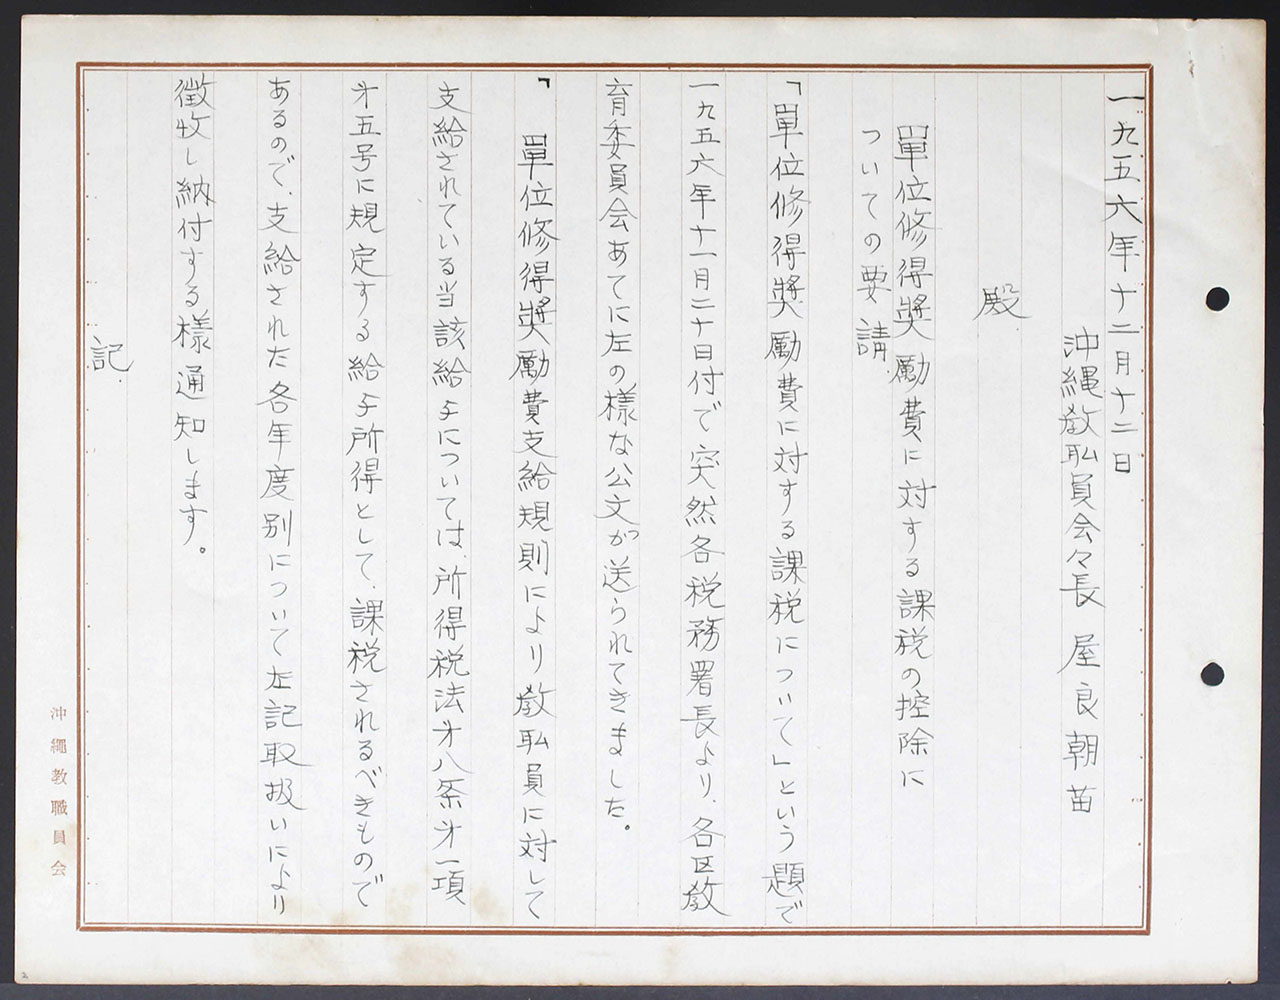 一九五六年十二月十二日
沖縄教职員会々長　屋良朝苗
殿
單位修得奬励費に対する課税の控除に
ついての要請
「單位修得奬励費に対する課税について」という題で
一九五六年十一月二十日付で突然各税務署長より、各区教
育委員会あてに左の様な公文が送られてきました。
「單位修得奬励費支給規則により教职員に対して
支給されている当該給与については、所得税法才八条才一項
才五号に規定する給与所得として、課税されるべきもので
あるので、支給された各年度別について左記取扱いにより
徴收し納付する様通知します。
記
沖繩教職員会